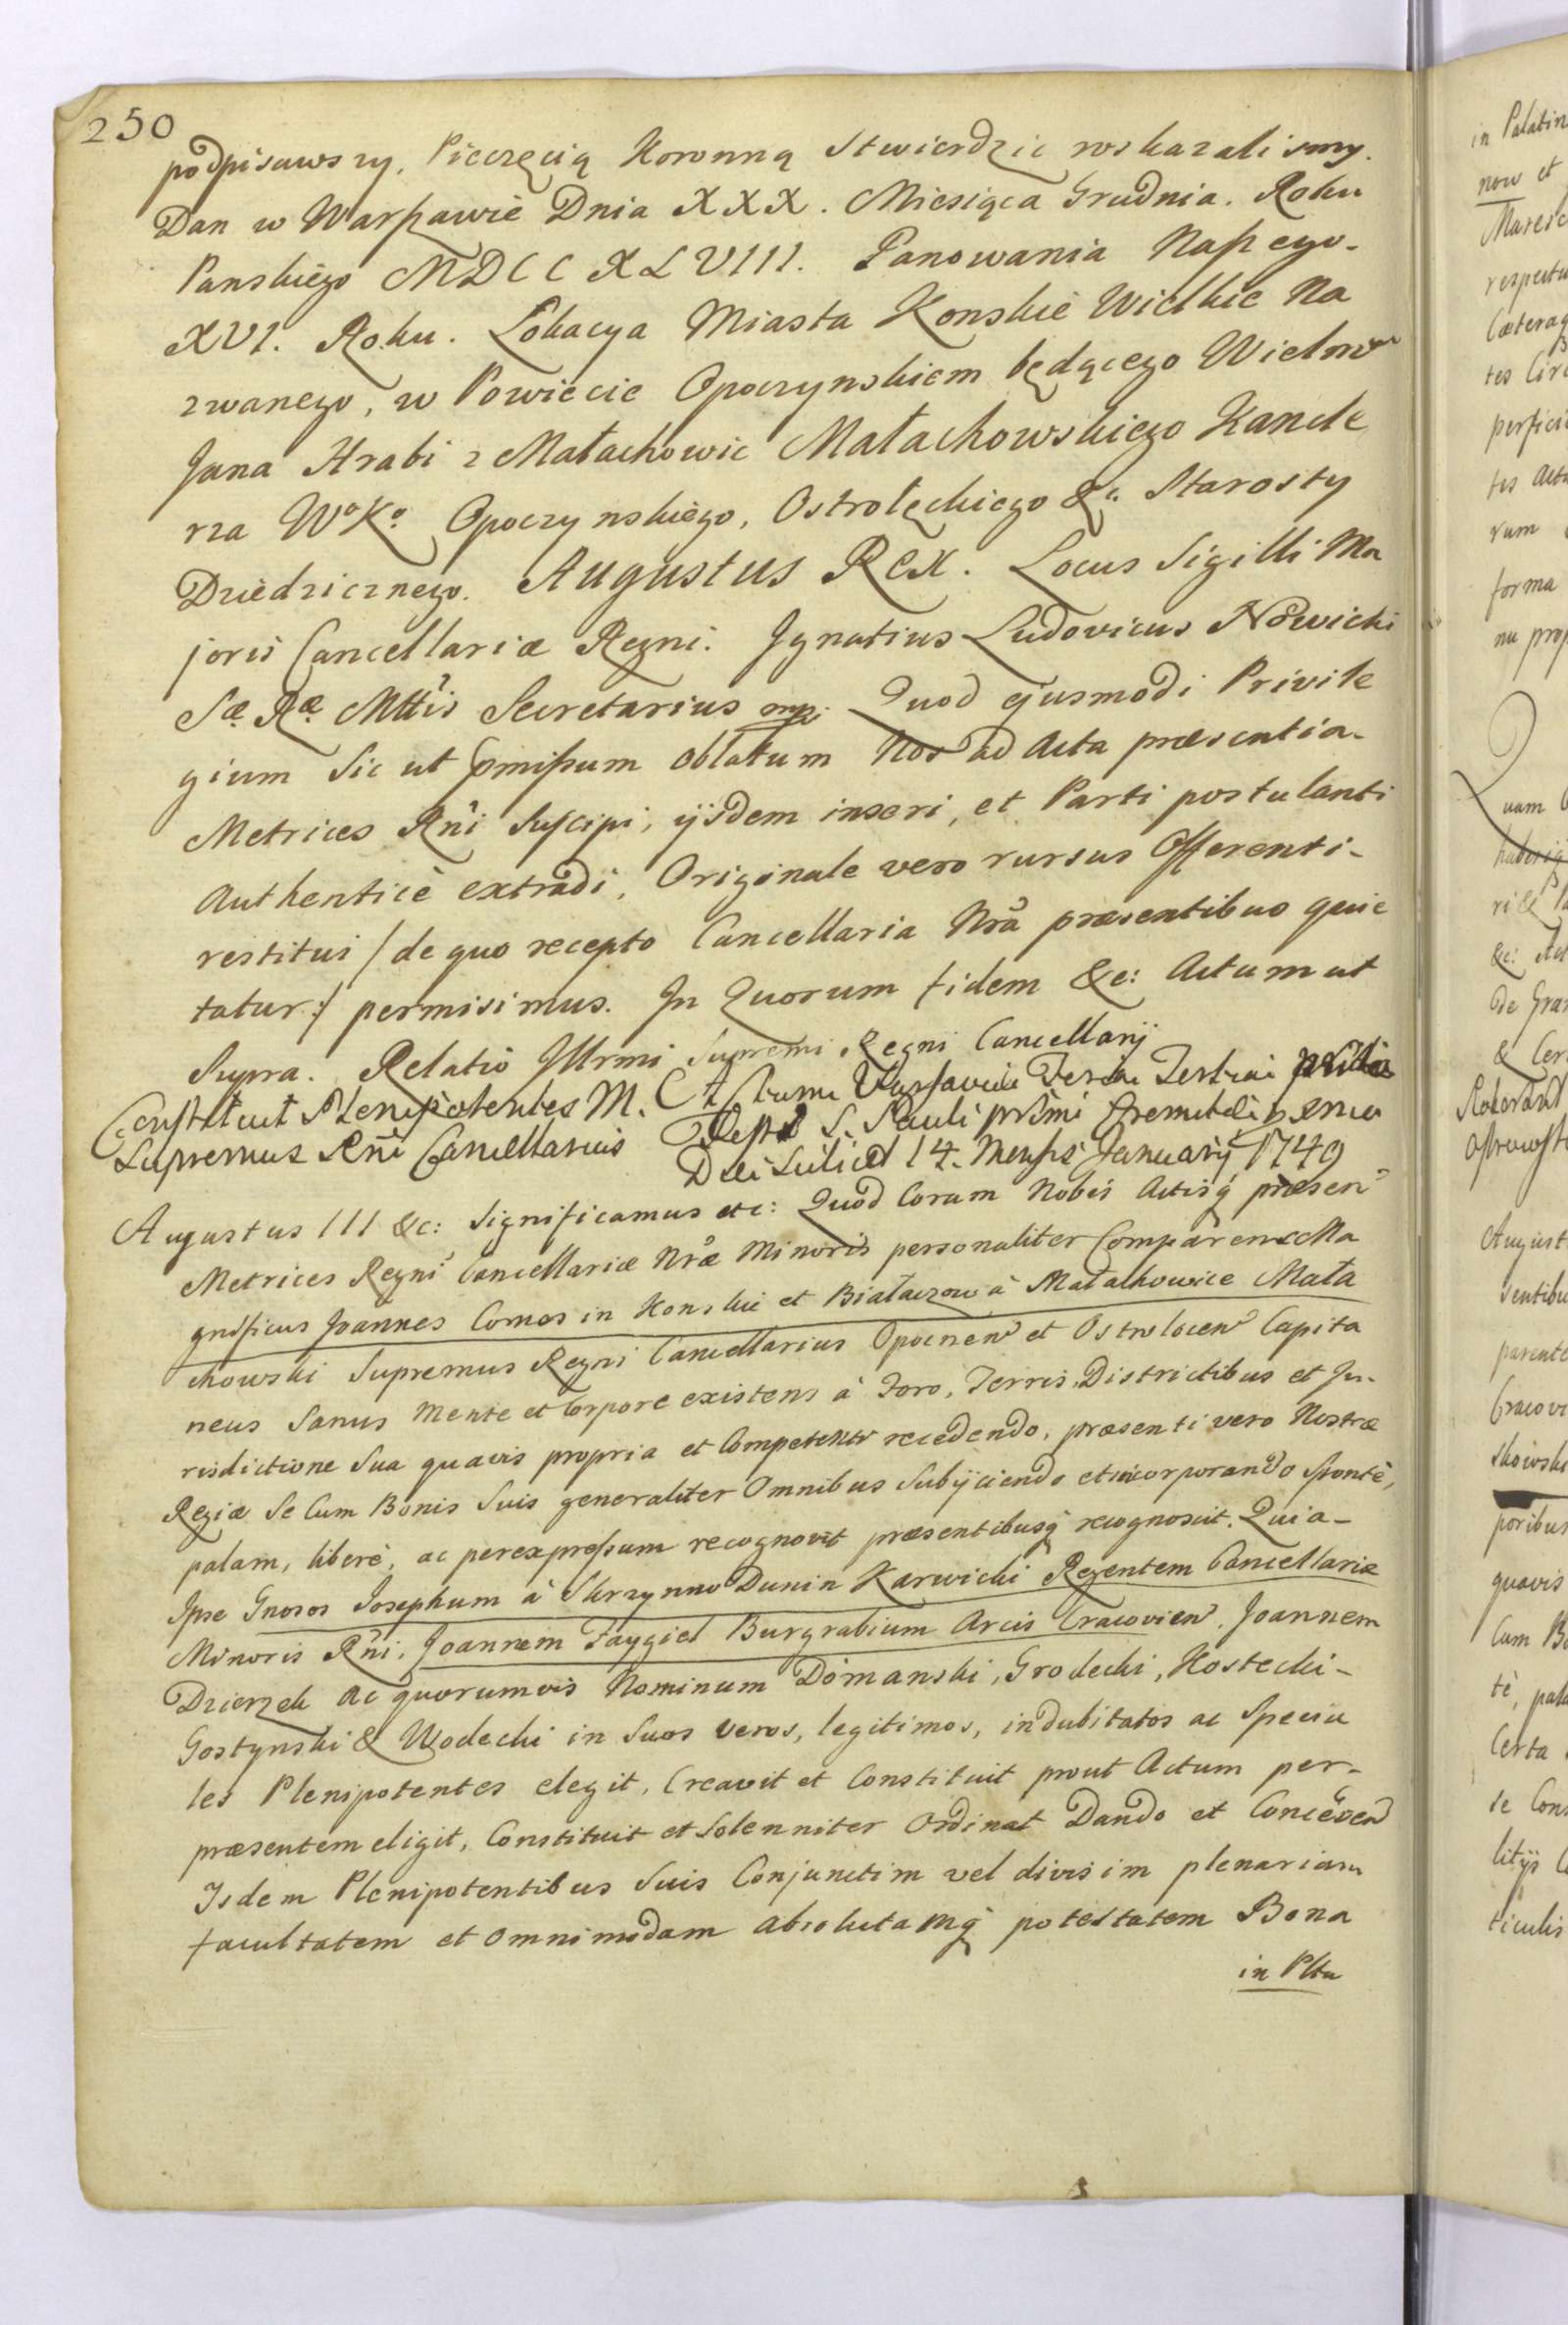 250
podpisawszy, Pieczęcią Koronną Stwierdzic roskazalismy.
Dan w Warszawie Dnia XXX. Miesiąca Grudnia. Roku
Panskiego MDCCXLVIII. Panowania Naszego-
XVI. Roku. Lokacya Miasta Konskie Wielkie Na
zwanego, w Powiecie Opoczynskiem będącego Wielmo
Jana Hrabi z Małachowic Małachowskiego Kancle
rza Wo Ko Opoczynskiego, Ostrołęckiego &c. Starosty
Dziedzicznego. Augustus Rex. Locus Sigilli Ma
joris Cancellariæ Regni. Ignatius Ludovicus Nowicki
Sæ Ræ Mttis Secretarius mp. Quod ejusmodi Privile
gium Sic ut pmissum oblatum Nos ad Acta præsentia-
Metrices Rni Suscipi, ijsdem inseri, et Parti postulanti
Authenticè extradi, Originale vero rursus Offerenti-
restitui /de quo recepto Cancellaria Nrã præsentibus quie
tatur:/ permisimus. In Quorum fidem &c: Actum ut
Supra. Relatio Illrmi Supremi Regni Cancellarij
Constituit Plenipotentes M. Actum Varsaviæ Feria Tertia pridie
Supremus Rni Cancellarius Festi S. Pauli primi Eremitæ
Die Scilicet 14. Mensis Januarij 1749
Augustus III &c: Significamus etc: Quod Coram Nobis Actisq præsen
Metrices Regni Cancellariæ Nræ Minoris personaliter Comparens Ma
gnificus Joannes Comes in Konskie et Białaczow à Małachowice Mała
chowski Supremus Regni Cancellarius Opocnen et Ostrolocen Capita
neus Sanus Mente et Corpore existens à Foro, Terris, Districtibus et Ju-
risdictione Sua quavis propria et Competenti recedendo, præsenti vero Nostræ
Regiæ Se Cum Bonis Suis generaliter Omnibus Subijciendo et incorporando Spontè,
palam, liberè, ac per expressum recognovit præsentibusq recognoscit. Quia-
Ipse Gnosos Josephum à Skrzynno Dunin Karwicki Regentem Cancellariæ
Minoris Rni, Joannem Faygiel Burgrabium Arcis Cracovien, Joannem
Dzierzek ac quorumvis Nominum Domanski, Grodecki, Kostecki-
Gostynski & Wodecki in Suos veros, legitimos, indubitatos ac Specia
les Plenipotentes elegit, Creavit et Constituit prout Actum per-
præsentem eligit, Constituit et Solenniter Ordinat Dando et Conceden
Isdem Plenipotentibus Suis Conjunctim vel divisim plenariam
facultatem et omnimodam absolutamq potestatem Bona
in Pltu